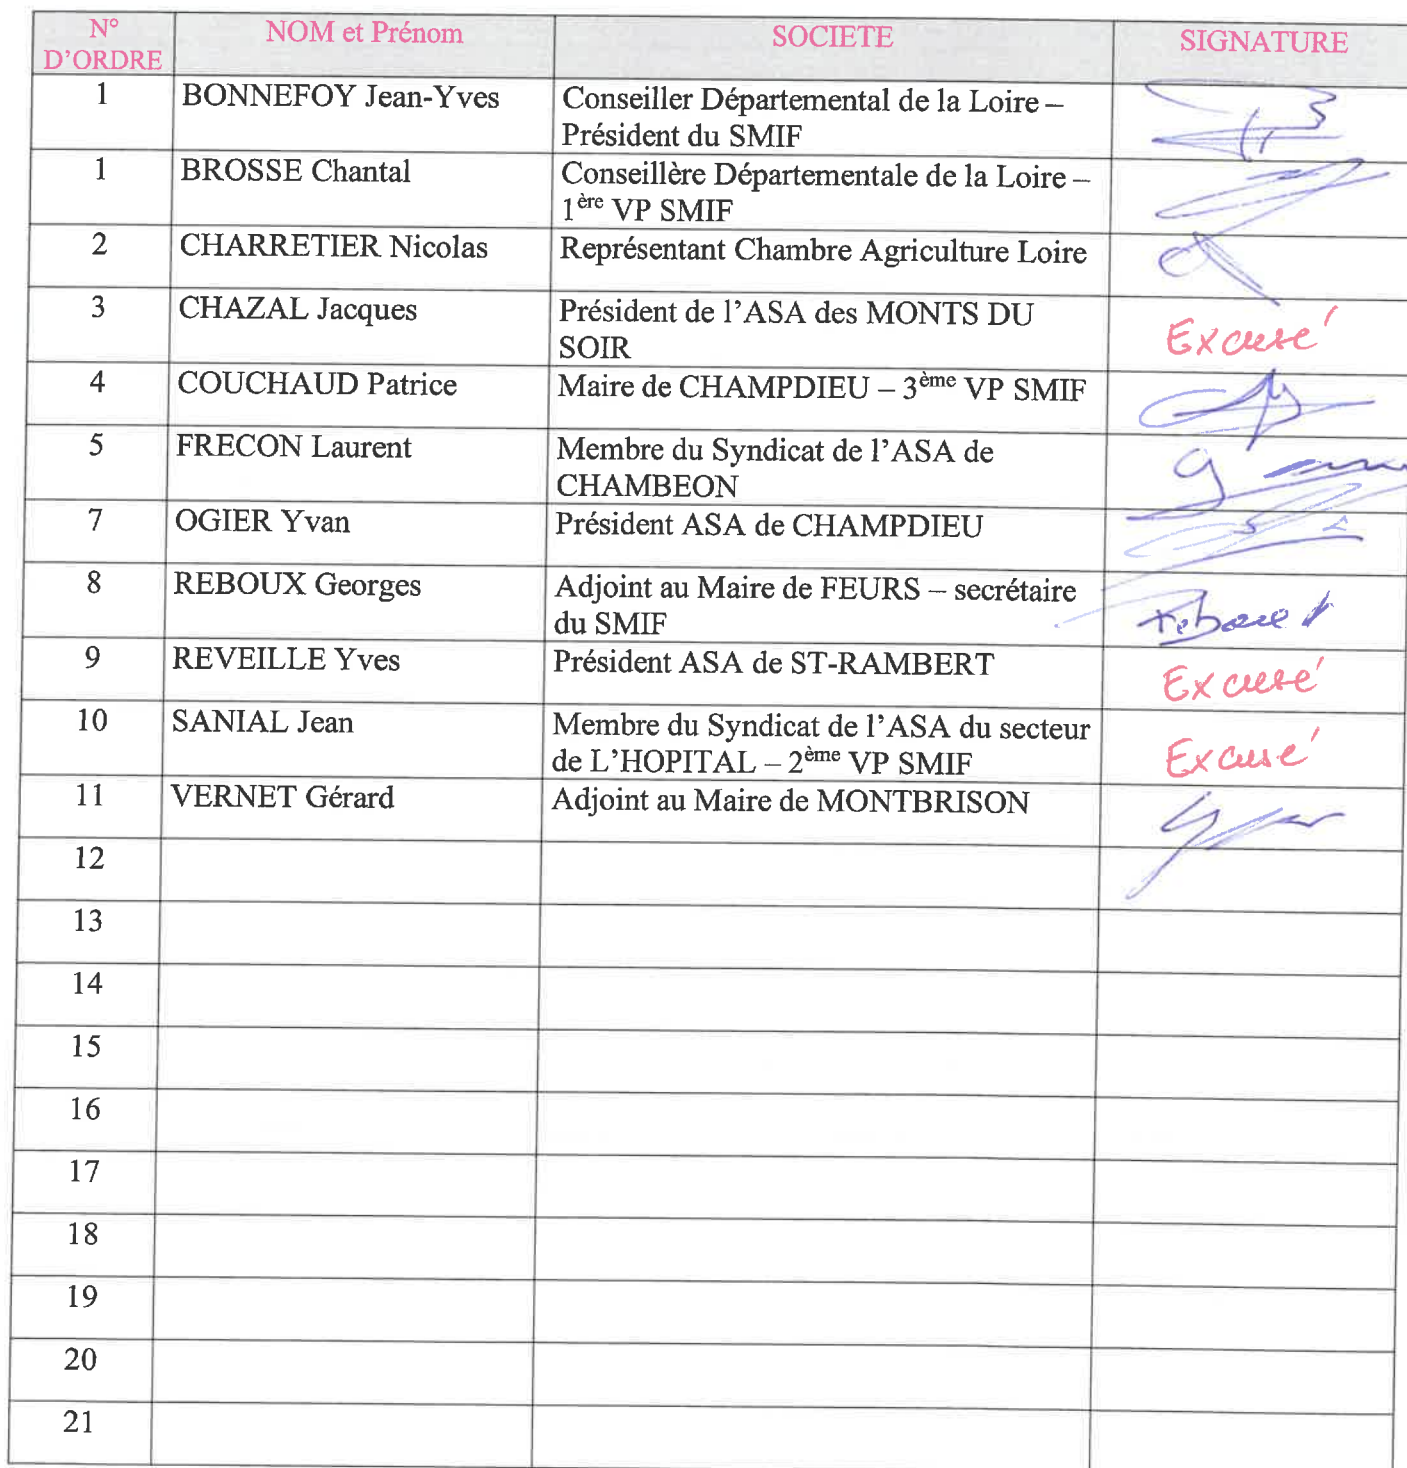 N° D'ORDRE NOM et Prénom SOCIETE SIGNATURE
1 BONNEFOY Jean-Yves Conseiller Départemental de la Loire –
Président du SMIF
1 BROSSE Chantal Conseillère Départementale de la Loire –
1ère VP SMIF
2 CHARRETIER Nicolas Représentant Chambre Agriculture Loire
3 CHAZAL Jacques Président de l'ASA des MONTS DU
SOIR Excusé
4 COUCHAUD Patrice Maire de CHAMPDIEU – 3ème VP SMIF
5 FRECON Laurent Membre du Syndicat de l'ASA de
CHAMBEON
7 OGIER Yvan Président ASA de CHAMPDIEU
8 REBOUX Georges Adjoint au Maire de FEURS – secrétaire
du SMIF
9 REVEILLE Yves Président ASA de ST-RAMBERT Excusé
10 SANIAL Jean Membre du Syndicat de l'ASA du secteur
de L'HOPITAL – 2ème VP SMIF Excusé
11 VERNET Gérard Adjoint au Maire de MONTBRISON
12
13
14
15
16
17
18
19
20
21